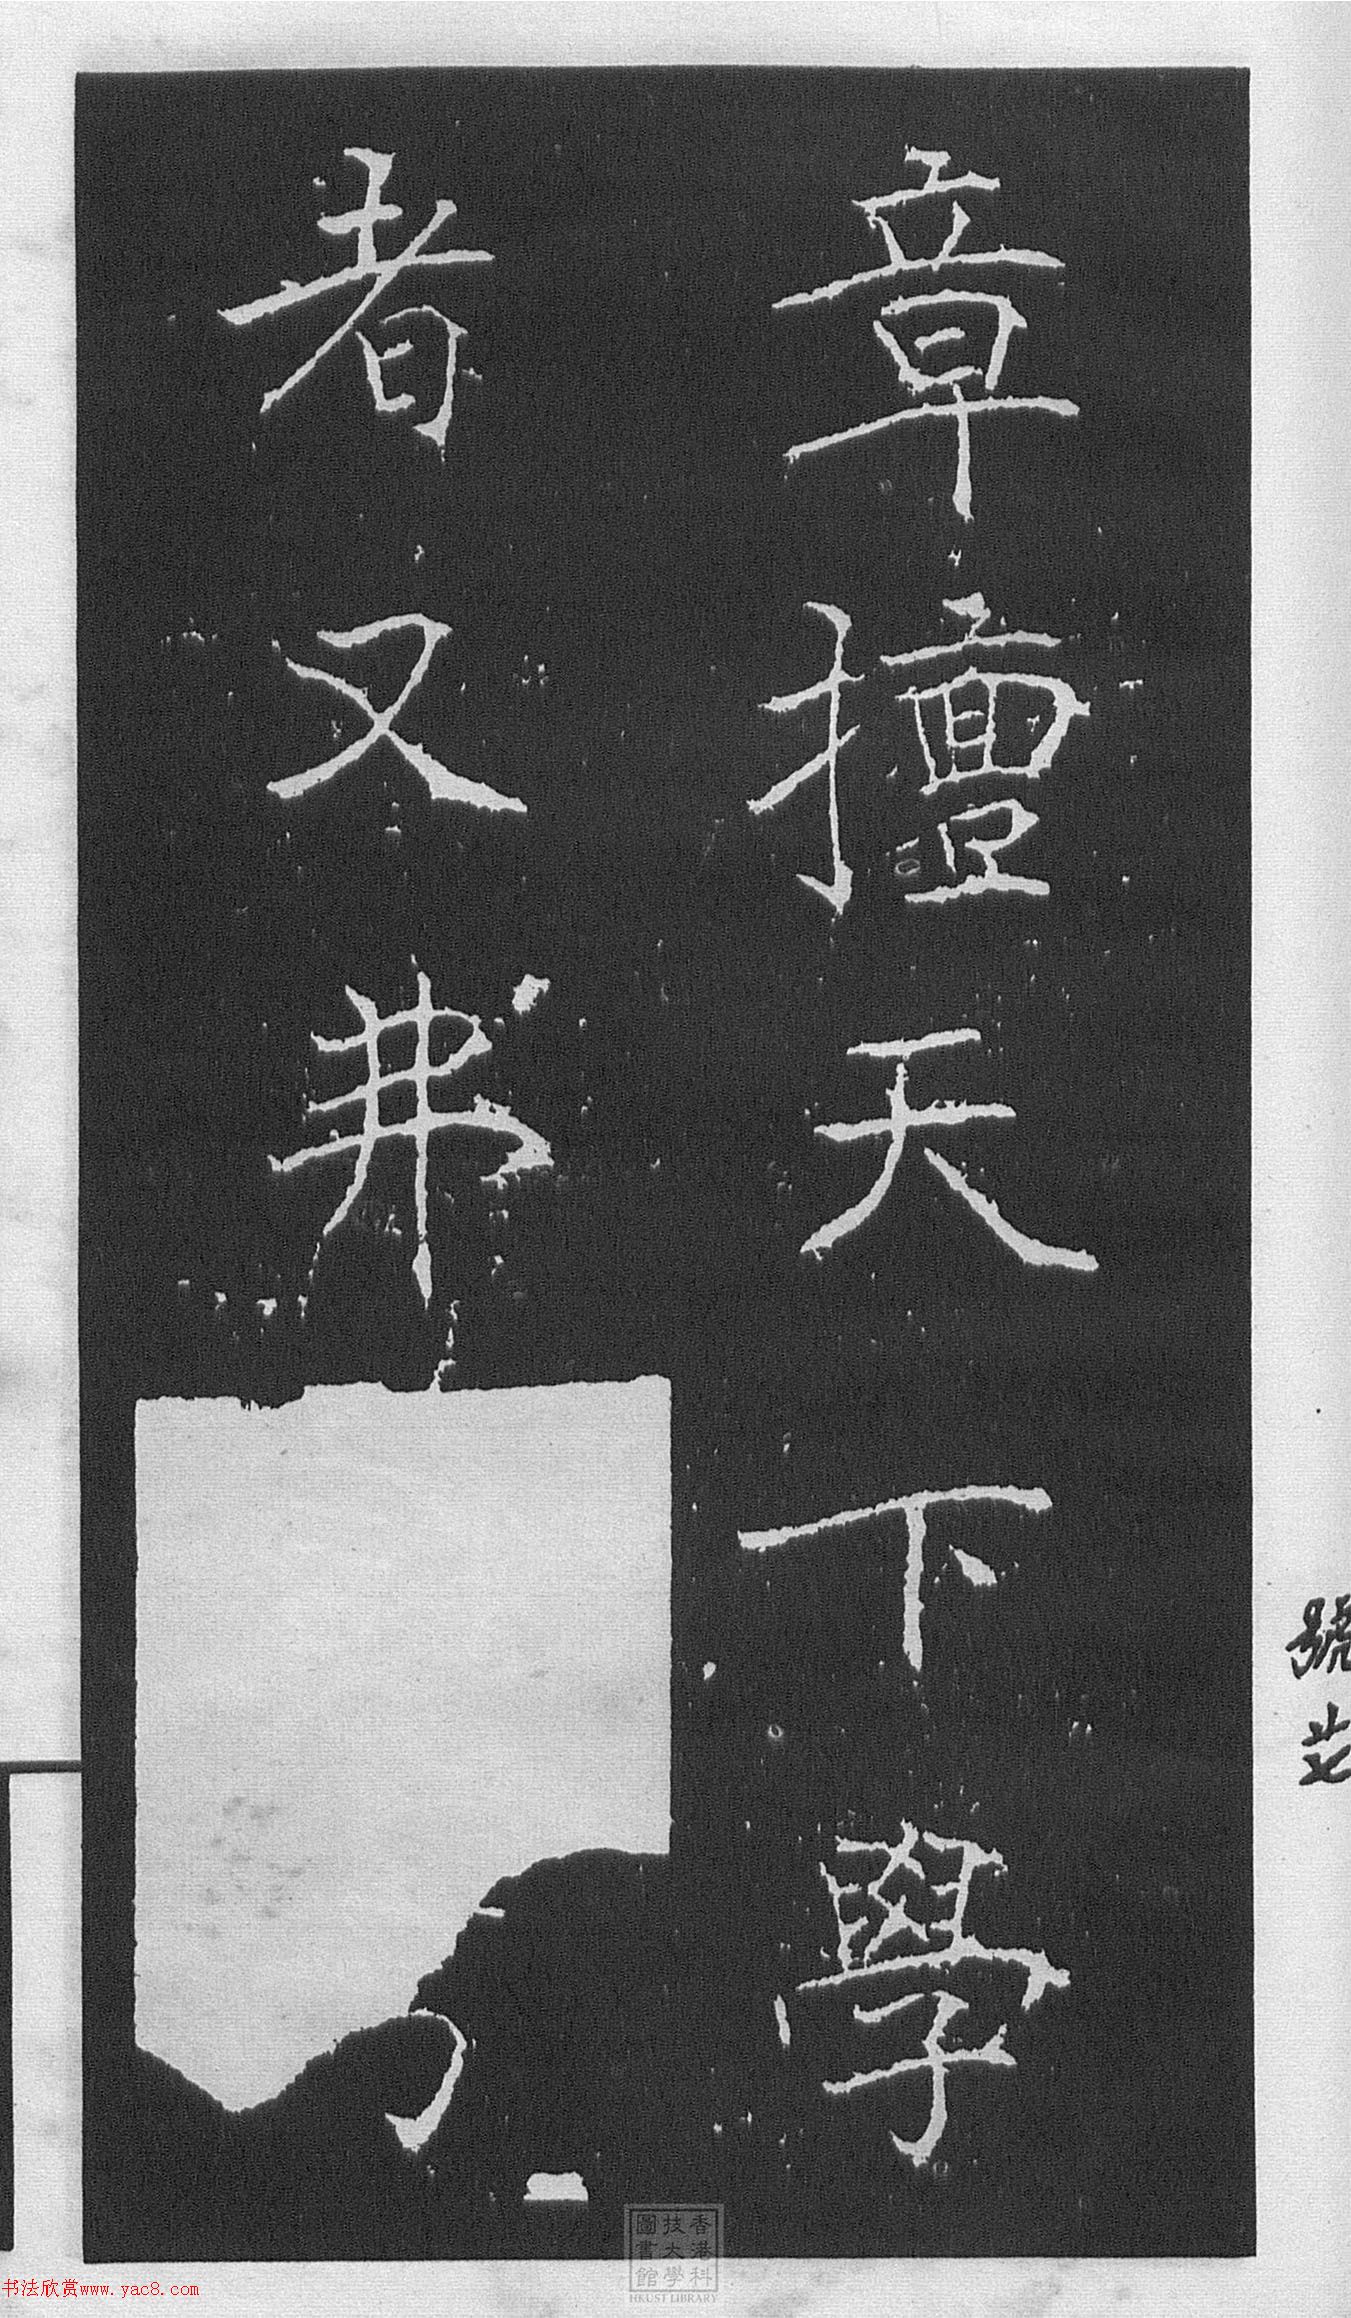 章擅天下學
者又弗
號
香港科
技大學
圖書館
HKUST LIBRARY
书法欣赏www.yac8.com